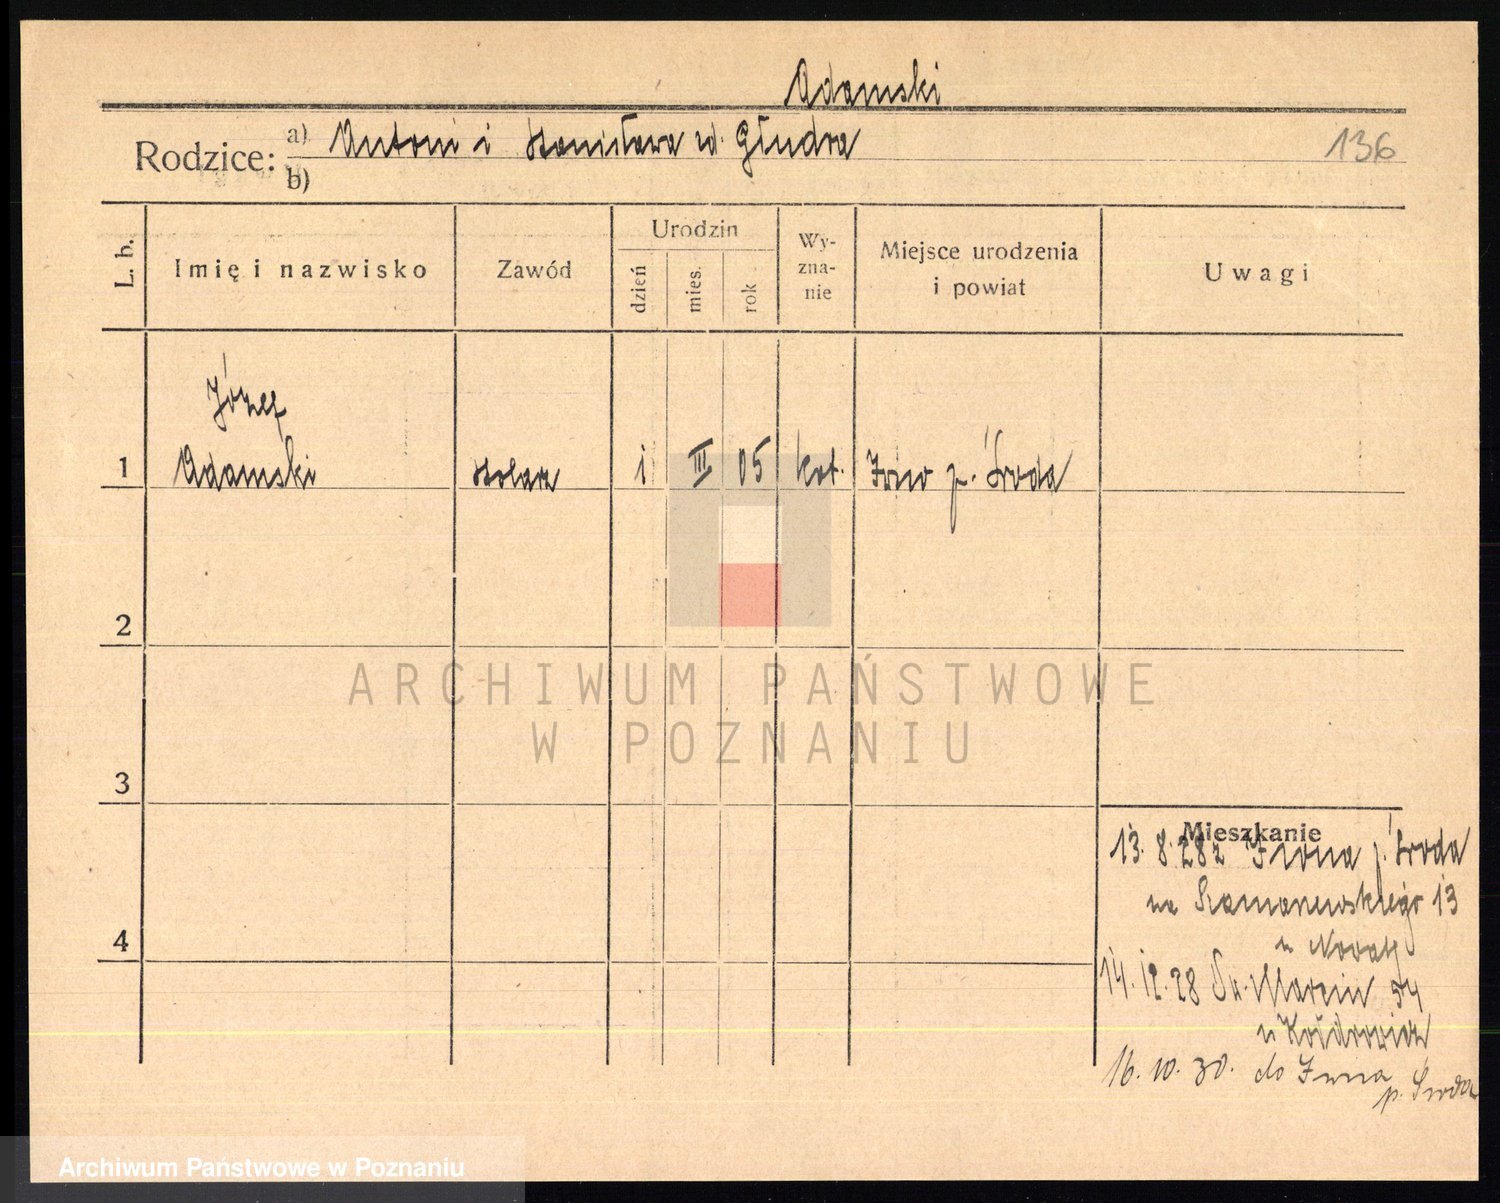 Adamski
Rodzice: a) Antoni i Stanisława zd. Gludra
b)
136
L. b.
Imię i nazwisko
Zawód
Urodzin
dzień
mies.
rok
Wy-
zna-
nie
Miejsce urodzenia
i powiat
Uwagi
Józef
1 Adamski stolarz 1 III 05 kat. p. Środa
2
3
4
Mieszkanie
13. 8. 28 z p. Środa
na 13
u
14. 12. 28 Św. Marcin 54
u
16. 10. 30. do
p. Środa
ARCHIWUM PAŃSTWOWE
W POZNANIU
Archiwum Państwowe w Poznaniu